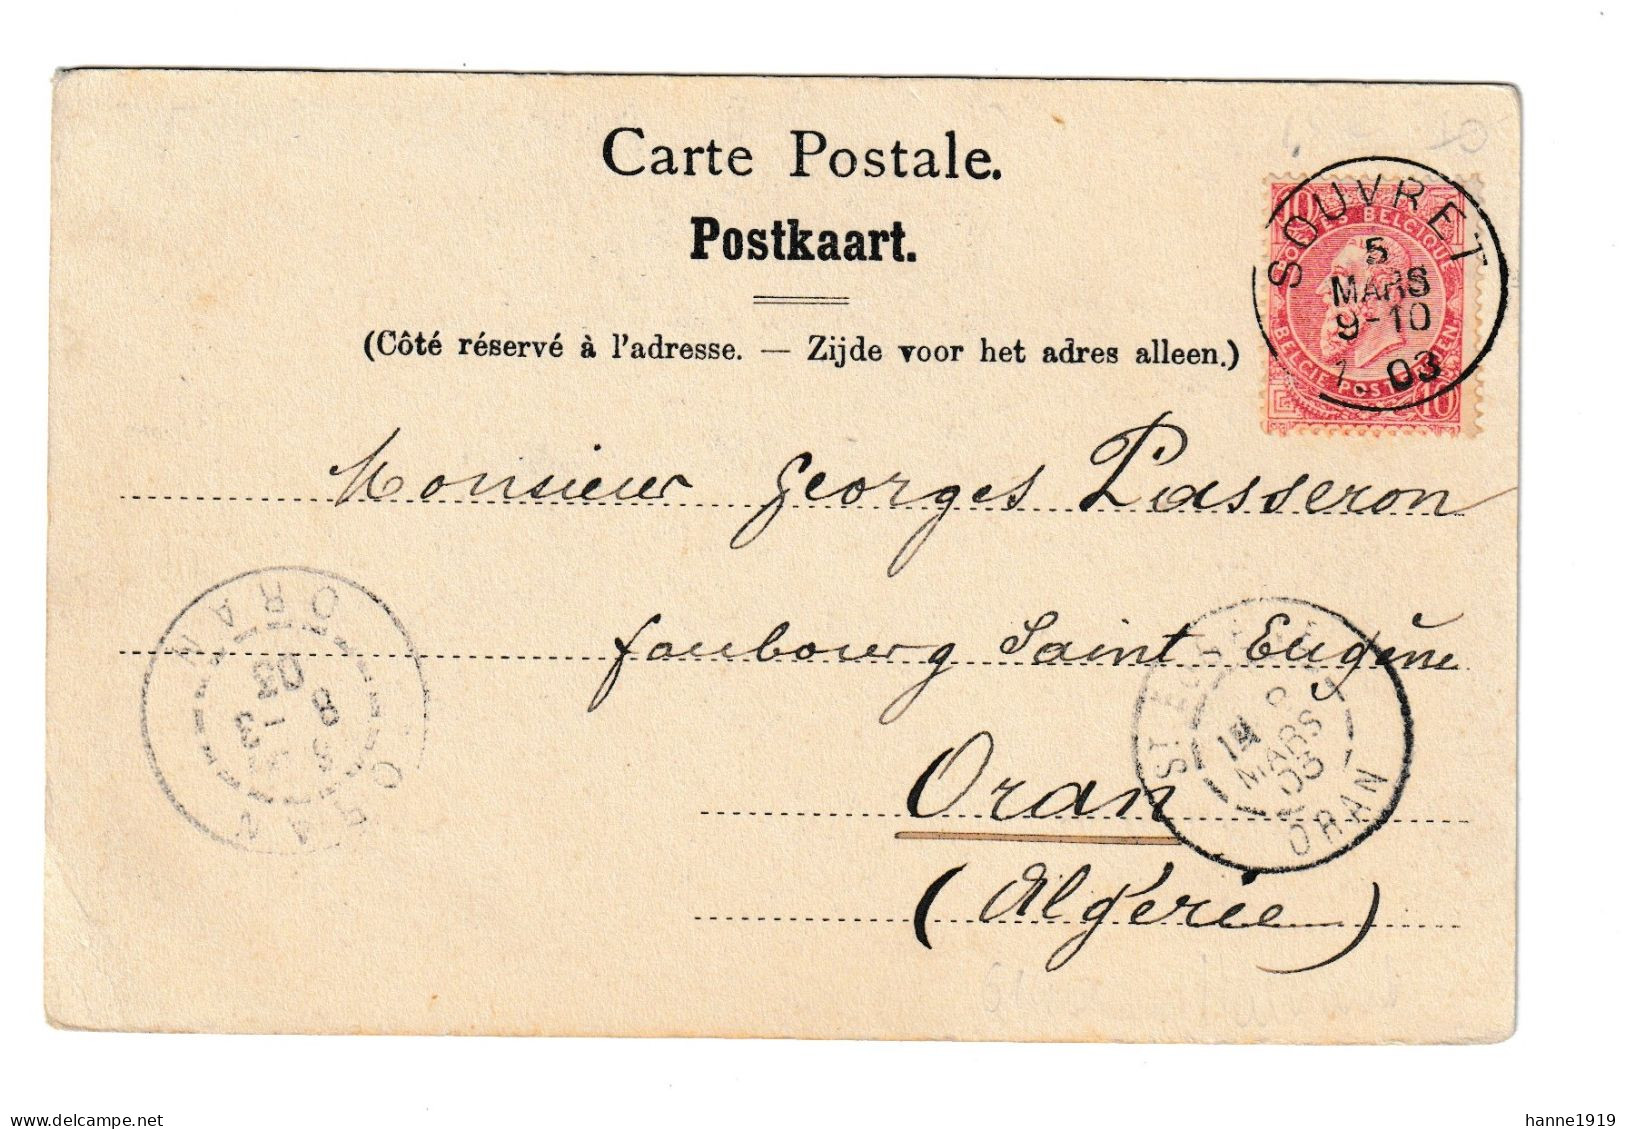 Carte Postale.
Postkaart.
(Côté réservé à l'adresse. — Zijde voor het adres alleen.)
10 10
POSTES BELGIQUE
BELGIE POSTERIJEN
10
SOUVRET
5
MARS
9-10
1. 03
Monsieur Georges Passeron
faubourg Saint Eugène
Oran
(Algérie)
ORAN
8
3
03
ORAN
ST EUGÈNE
8
MARS
03
ORAN
delcampe.net
hanne1919